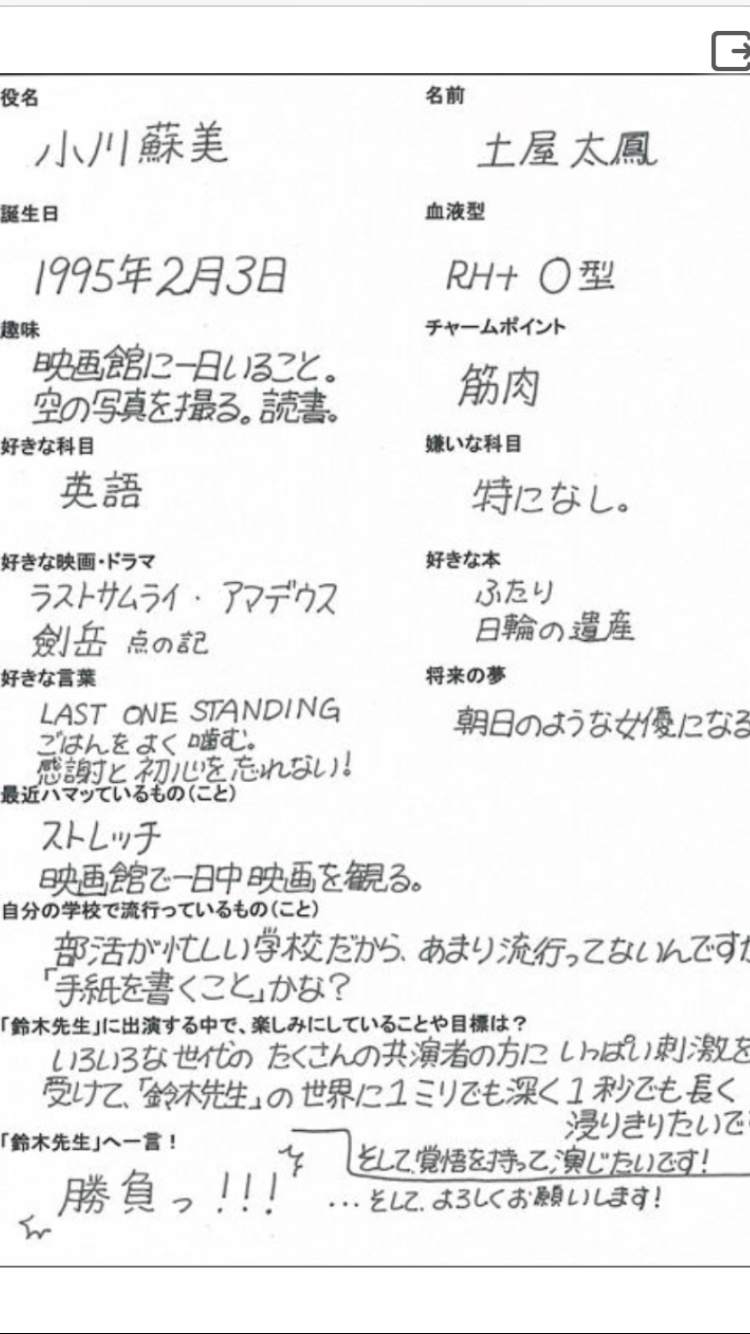 役名
小川蘇美
名前
土屋太鳳
誕生日
1995年2月3日
血液型
RH+ O型
趣味
映画館に一日いること。
空の写真を撮る。読書。
チャームポイント
筋肉
好きな科目
英語
嫌いな科目
特になし。
好きな映画・ドラマ
ラストサムライ・アマデウス
劍岳 点の記
好きな本
ふたり
日輪の遺産
好きな言葉
LAST ONE STANDING
ごはんをよく噛む。
感謝と初心を忘れない!
将来の夢
朝日のような女優になる
最近ハマッているもの(こと)
ストレッチ
映画館で一日中映画を観る。
自分の学校で流行っているもの(こと)
部活が忙しい学校だから、あまり流行ってないんですが
「手紙を書くこと」かな?
「鈴木先生」に出演する中で、楽しみにしていることや目標は?
いろいろな世代の たくさんの共演者の方に いっぱい刺激を
受けて、「鈴木先生」の世界に1ミリでも深く1秒でも長く
浸りきりたいで
「鈴木先生」へ一言!
そして、覚悟を持って、演じたいです!
勝負っ!!!
…そして、よろしくお願いします!